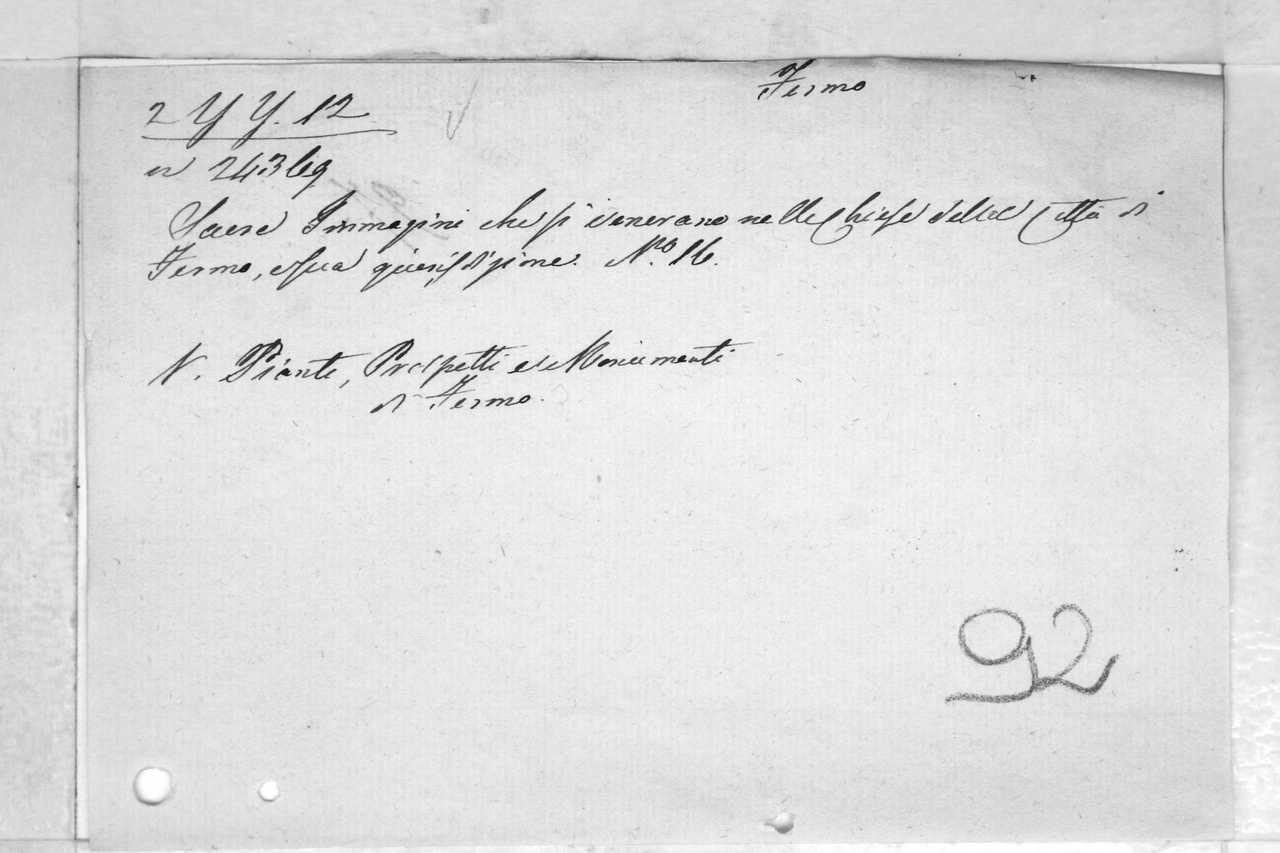 Fermo
2 Y Y. 12
n 243 
Sacre Immagini che si venerano nelle Chiese della Città di
Fermo, e sua giurisdizione. N.ro 16.
V. Piante, Prospetti e Monumenti
di Fermo.
92